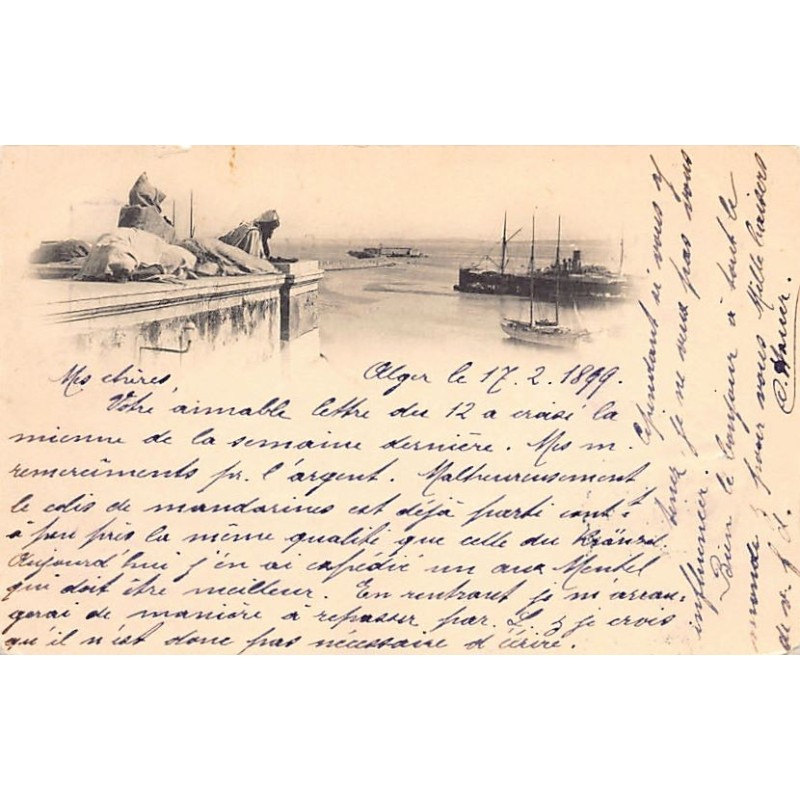 Alger le 17.2.1899.
Mes chères,
Votre aimable lettre du 12 a croisé la
mienne de la semaine dernière. Mes m.
remercîments pr. l'argent. Malheureusement
le colis de mandarines est déjà parti contt
à peu près la même qualité que celle du Kränzel
Aujourd'hui j'en ai expédié un aux Mentel
qui doit être meilleur. En rentrant je m'arran-
gerai de manière à repasser par. L. & je crois
qu'il n'est donc pas nécessaire d'écrire.
Cependant si vous y
tenez, je ne veux pas vous
influencer.
Bien le bonjour à tout le
monde & pour vous Mille baisers
de v. f. d.